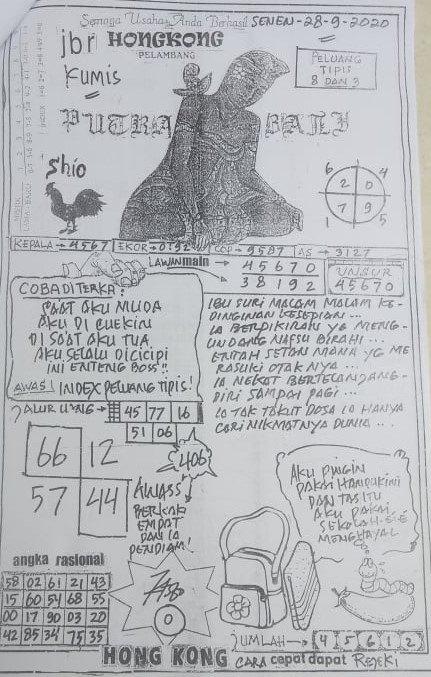 Semoga Usaha Anda Berhasil SENEN-28-9-2020
jbr HONGKONG
PELAMBANG
KUMIS
PELUANG
TIPIS
8 DAN 3
PUTRA BALI
Shio
6 4
2 0
7 9
1 5
KEPALA → 4567 EKOR → 0192 COP → 9587 AS → 3127
LAWAN main → 45670
38192
UNSUR
45670
COBA DI TERKA:
SAAT AKU MUDA
AKU DI CUEKIN
DI SAAT AKU TUA
AKU SELALU DICICIPI
INI ENTENG BOSS"!!
AWAS! INDEX PELUANG TIPIS!
IBU SURI MACAM MALAM KE-
DINGINAN KESEPIAN...
IA BERPIKIRAN YG MENG-
UNDANG NAFSU BIRAHI...
ENTAH SETAN MANA YG ME
RASUKI OTAK NYA...
IA NEKAT BERTELANJANG-
DIRI SAMPAI PAGI...
IA TAK TAKUT DOSA IA HANYA
CARI NIKMATNYA DUNIA...
JALUR UANG → 45 77 16
51 06
66 12
57 44
406
AWASS
BERKAKI
EMPAT
DAN IA
PENDIAM!
AKU PINGIN
PAKAI
DAN TAS ITU
AKU PAKAI
SEKOLAH. E'E
MENGHAYAL
angka rasional
58 02 61 21 43
15 60 54 68 55
00 17 90 03 20
42 85 34 75 35
0
JUMLAH → 4 5 6 1 2
HONG KONG CARA cepat dapat REJEKI